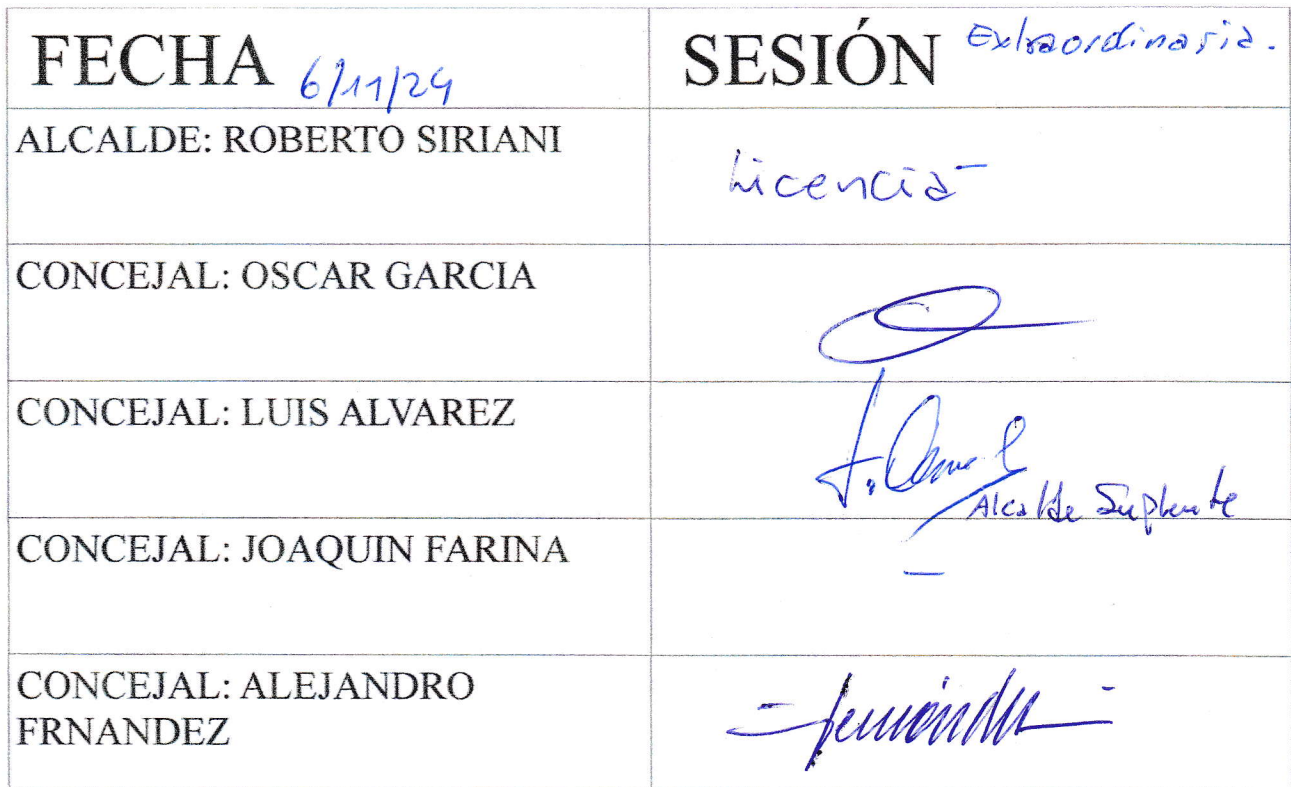 FECHA 6/11/24
SESIÓN Extraordinaria.
ALCALDE: ROBERTO SIRIANI
Licencia
CONCEJAL: OSCAR GARCIA
CONCEJAL: LUIS ALVAREZ
Alcalde Suplente
CONCEJAL: JOAQUIN FARINA
CONCEJAL: ALEJANDRO
FRNANDEZ